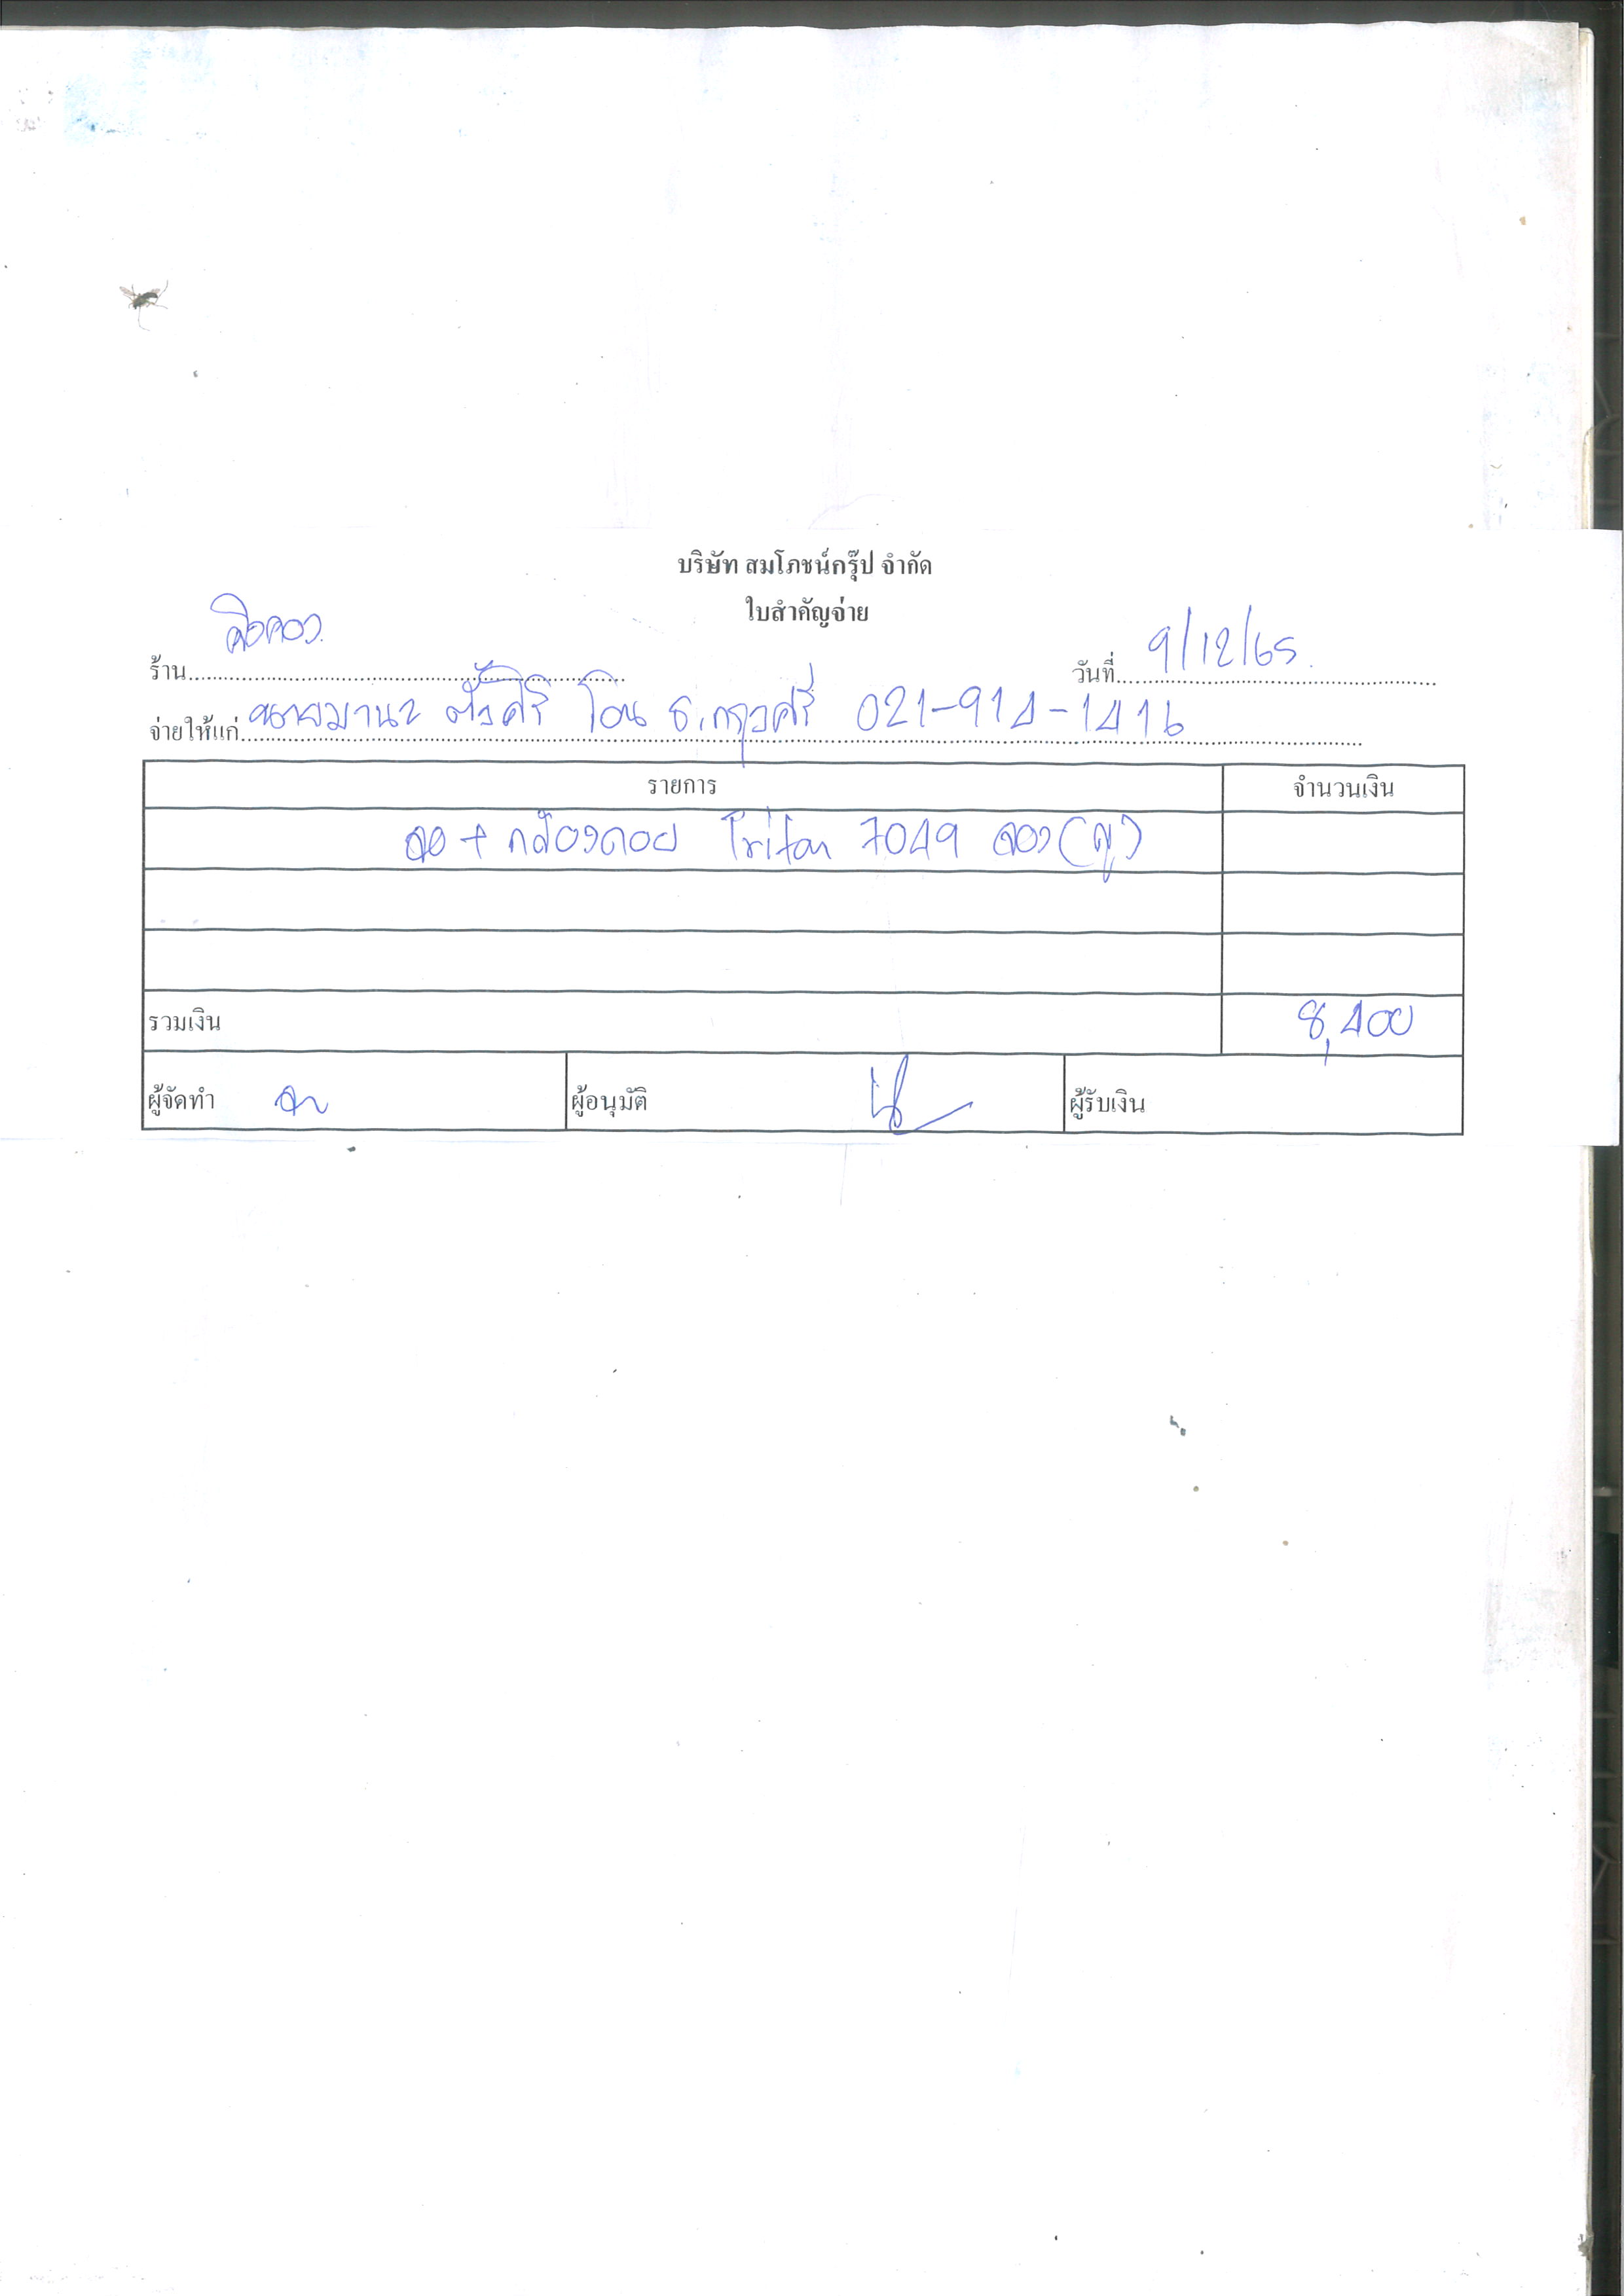 บริษัท สมโภชน์กรุ๊ป จำกัด
ใบสำคัญจ่าย
ร้าน
วันที่ 9/12/65
จ่ายให้แก่ นายมานะ ตั้งศิริ โอน ธ.กรุงศรี 021-914-1416
รายการ จำนวนเงิน
จอ + กล้องถอย Triton 7049 จอง
รวมเงิน 8,400
ผู้จัดทำ ผู้อนุมัติ ผู้รับเงิน